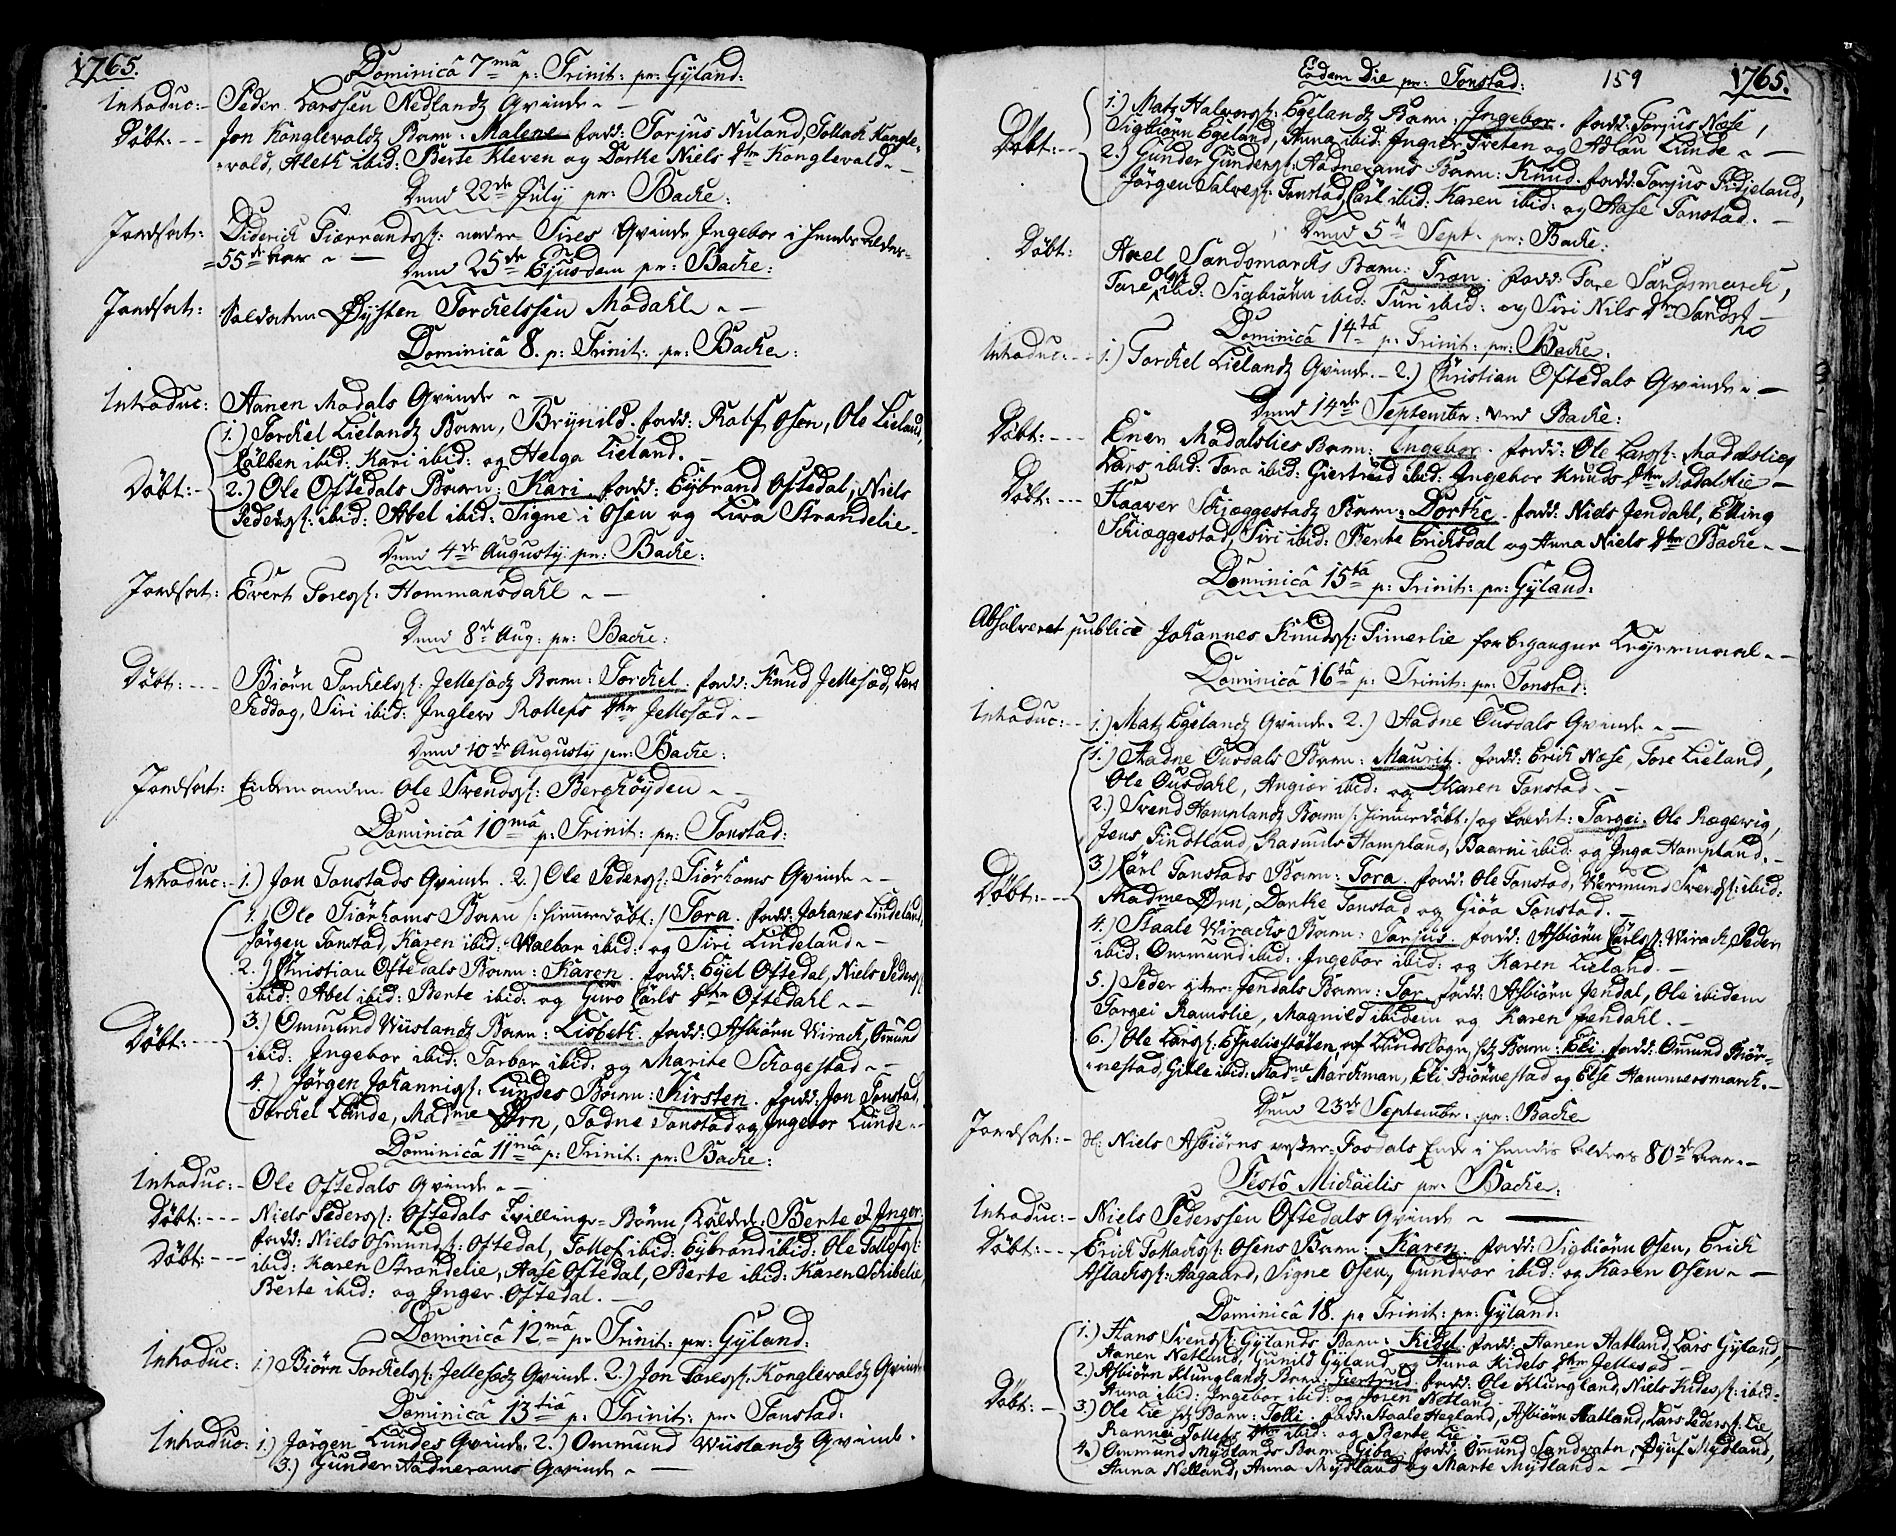 1765.
Dominicâ 7mâ p: Trinit: pr: Gyland:
Introduc:- Peder Larssen Nedlandz Qvinde
Døbt:-- Jon Konglevoldz Barn: Malene fadd: Torjus Nuland, Tollach Kongle-
vold, Aleth ibid: Berte Kleven og Dorthe Niels Dtr Konglevold
Dend 22de July pr: Backe:
Jordsat: Diderich Tiorrands: nedre Sires Qvinde Ingebor i hendes Alders
55de Aar
Dend 25de Ejusdem pr: Backe:
Jordsat: Soldaten Øysten Torchelssen Modahl
Dominicâ 8. p: Trinit: pr: Backe:
Introduc: Aanen Modals Qvinde
1.) Torchel Lielandz Barn, Brynild. fadd: Osen, Ole Lieland,
ibid: Kari ibid: og Helga Lieland.
Døbt:- 2.) Ole Oftedals Barn: Kari fadd: Eybrand Oftedal, Niels
Peders: ibid: Abel ibid: Signe i Osen og Liva Strandelie
Dend 4de Augusty pr: Backe:
Jordsat: Evert Tores: Hommansdahl
Dend 8de Aug: pr: Backe:
Døbt:--- Biørn Torchels: Jellesødz Barn: Torchel fadd: Knud Jellesød, Lars
Feddog, Siri ibid: Dtr Jellesød
Dend 10de Augusty pr: Backe:
Jordsat: Enkemanden Ole Svends: Berghøyden
Dominicâ 10mâ p: Trinit: pr: Tonstad:
Introduc:- 1.) Jon Tonstads Qvinde. 2.) Ole Peders: Tiørhoms Qvinde
1.) Ole Tiørhoms Barn /: hiemmedøbt:/ Tora. fadd: Johanes Lindeland,
Jørgen Tonstad, Karen ibid: Walbor ibid: og Siri Lindeland
2.) Christian Oftedals Barn: Karen. fadd: Eyel Oftedal, Niels Peders:
ibid: Abel ibid: Berte ibid: og Guro Carls Dtr Oftedahl
Døbt:--- 3.) Ommund Wiislandz Barn: Lisbeth. fadd: Asbiørn Wirach, Ommund
ibid: Ingebor ibid: Torbor ibid: og Marite Schogestad
4.) Jørgen Johannis: Lundes Barn: Kirsten. fadd: Jon Tonstad,
Torchel Lunde, Madme Ørn, Tadne Tonstad og Ingebor Lunde
Dominicâ 11mâ p: Trinit: pr: Backe:
Introduc:- Ole Oftedals Qvinde
Døbt:--- Niels Peders: Oftedals Tvillings-Børn kaldede: Berte & Inger.
Døbt:--- fadd: Niels Osmunds: Oftedal, Tollof ibid: Eybrand ibid: Ole Tollefs:
ibid: Karen Strandelie, Aase Oftedal, Berte ibid: Karen Schibelie,
Berte ibid: og Inger Oftedal.
Dominicâ 12mâ p: Trinit: pr: Gyland:
Introduc: 1.) Biørn Torchels: Jellesødz Qvinde. 2.) Jon Tores: Konglevoldz Qvinde
Dominicâ 13tiâ p: Trinit: pr: Tonstad:
Introduc: 1.) Jørgen Lundes Qvinde. 2.) Ommund Wiislandz Qvinde.
3.) Gunder Aadnerams Qvinde
Eodem Die pr: Tonstad: 159 1765.
1.) Matz Halvors: Egelandz Barn: Ingebor. fadd: Torjus Næse,
Sigbiørn Egeland, Anna ibid: Treten og Adlou Lunde
Døbt:-- 2.) Gunder Gunders: Aadnerams Barn: Knud. fadd: Torjus Fidjeland,
Jørgen Salves: Tonstad, Carl ibid: Karen ibid: og Aase Tonstad.
Dend 5te Sept. pr: Backe:
Døbt: Axel Sandsmarcks Barn: Tron. fadd: Tore Sandsmarck,
Tore Ols: ibid: Sigbiørn ibid: Turi ibid: og Siri Nils Dtr
Dominicâ 14tâ p: Trinit: pr: Backe:
Introduc:-- 1.) Torchel Lielandz Qvinde.- 2.) Christian Oftedals Qvinde
Dend 14de Septembr: ved Backe:
Døbt:--- Enen Modalslies Barn: Ingebor. fadd: Ole Lars: Modalslien
Lars ibid: Tora ibid: Giertrud ibid: Ingebor Knuds Dtr Modalslie
Døbt:--- Haaver Schjeggestadz Barn: Dorthe. fadd: Niels Jendahl, Elling
Schiæggestad, Siri ibid: Berte Ericksdal og Anna Niels Dtr Backe
Dominicâ 15tâ p: Trinit: pr: Gyland:
Absolveret publicè Johannes Knuds: Timerlie for begangne Leyermaal
Dominicâ 16tâ p: Trinit: pr: Tonstad:
Introduc:-- 1.) Matz Egelandz Qvinde. 2.) Aadne Ousdals Qvinde
1.) Aadne Ousdals Barn: Mauritz. fadd: Erich Næse, Tore Lieland,
Ole Ousdahl, Angier ibid: og Karen Tonstad
2.) Svend Hamplandz Barn /: hiemmedøbt:/ og kaldet: Targei. Ole Rægevig,
Jens Findtland, Rasmus Hampland, Baarni ibid: og Inga Hampland.
3.) Carl Tonstads Barn: Tora. fadd: Ole Tonstad, Wermund Svends: ibid:
Døbt:--- Madme Ørn, Dorthe Tonstad og Giøa Tonstad.
4.) Staale Wirachs Barn: Torjus. fadd: Asbiørn Carls: Wirach, Peder
ibid: Ommund ibid: Ingebor ibid: og Karen Lieland.
5.) Peder ytre Jendals Barn: Tor. fadd: Asbiørn Jendal, Ole ibidem
Torgei Ramslie, Magnild ibidem og Karen Jendahl.
6.) Ole Lars: Espelistølen, af Lunds Sogn, Barn: Eli fadd: Ommund Biør-
nestad, Gisle ibid: Madme Marckman, Eli Biørnestad og Else Hammersmarck.
Dend 23de Septembr: pr: Backe
Jordsat:- Sl: Niels Asbiørns vestre Fosdals Enke i hendes Alders 80de Aar
Festô Michaelis pr: Backe:
Introduc:- Niels Pederssen Oftedals Qvinde
Døbt:--- Erich Tollachs: Osens Barn: Karen. fadd: Sigbiørn Osen, Erich
Aslachs: Aagaard, Signe Osen, Gundvor ibid: og Karen Osen
Dominicâ 18. p: Trinit: pr: Gyland:
1.) Hans Svends: Gylands Barn: Kidel. fadd: Aanen Aatland, Lars Gyland,
Aanen Netland, Gunild Gyland og Anna Kidels Dtr Jellesød
2.) Asbiørn Klunglandz Barn: Giertrud. fadd: Ole Klungland, Niels Kidels: ibid:
Døbt:- Anna ibid: Ingebor ibid: og Joren Netland.
3.) Ole Lie Barn: Tolli fadd: Staale Hegland, Asbiørn Aatland, Lars Peders: Lie
Rannei Tollefs Dtr ibid: og Berte Lie
4.) Ommund Mydlands Barn: Giba. fadd: Ommund Sandvatn, Mydland,
Anna Netland, Anna Mydland og Marte Mydland